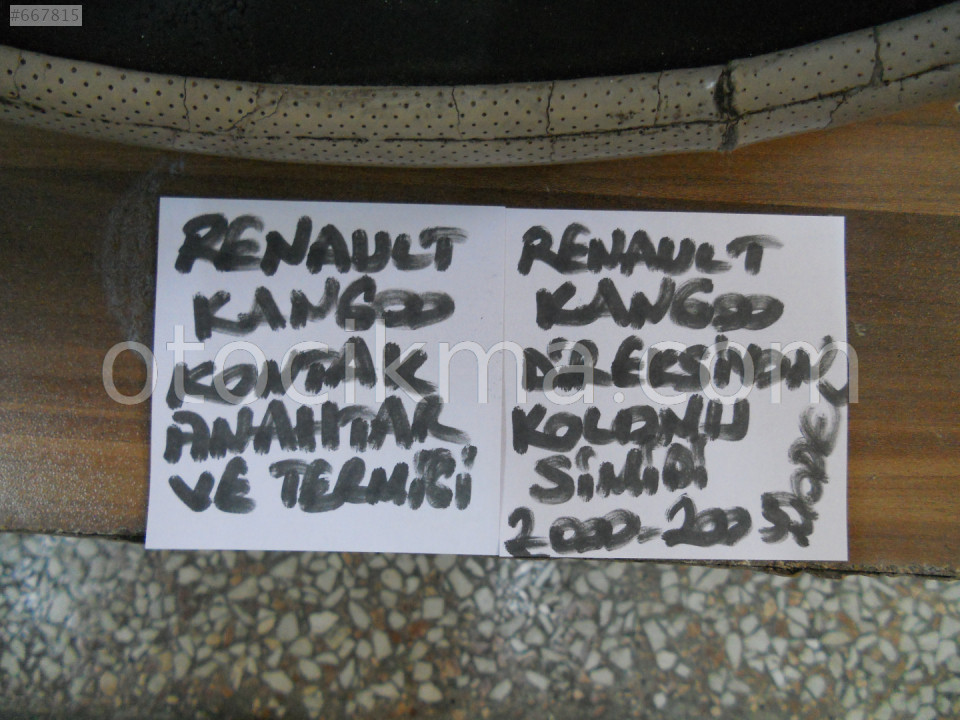 #667815
RENAULT
KANGOO
KONTAK
ANAHTAR
VE TERMİĞİ
RENAULT
KANGOO
DİREKSİYON
KOLONU
SİMİDİ
2000-2005
MODEL
otocikma.com